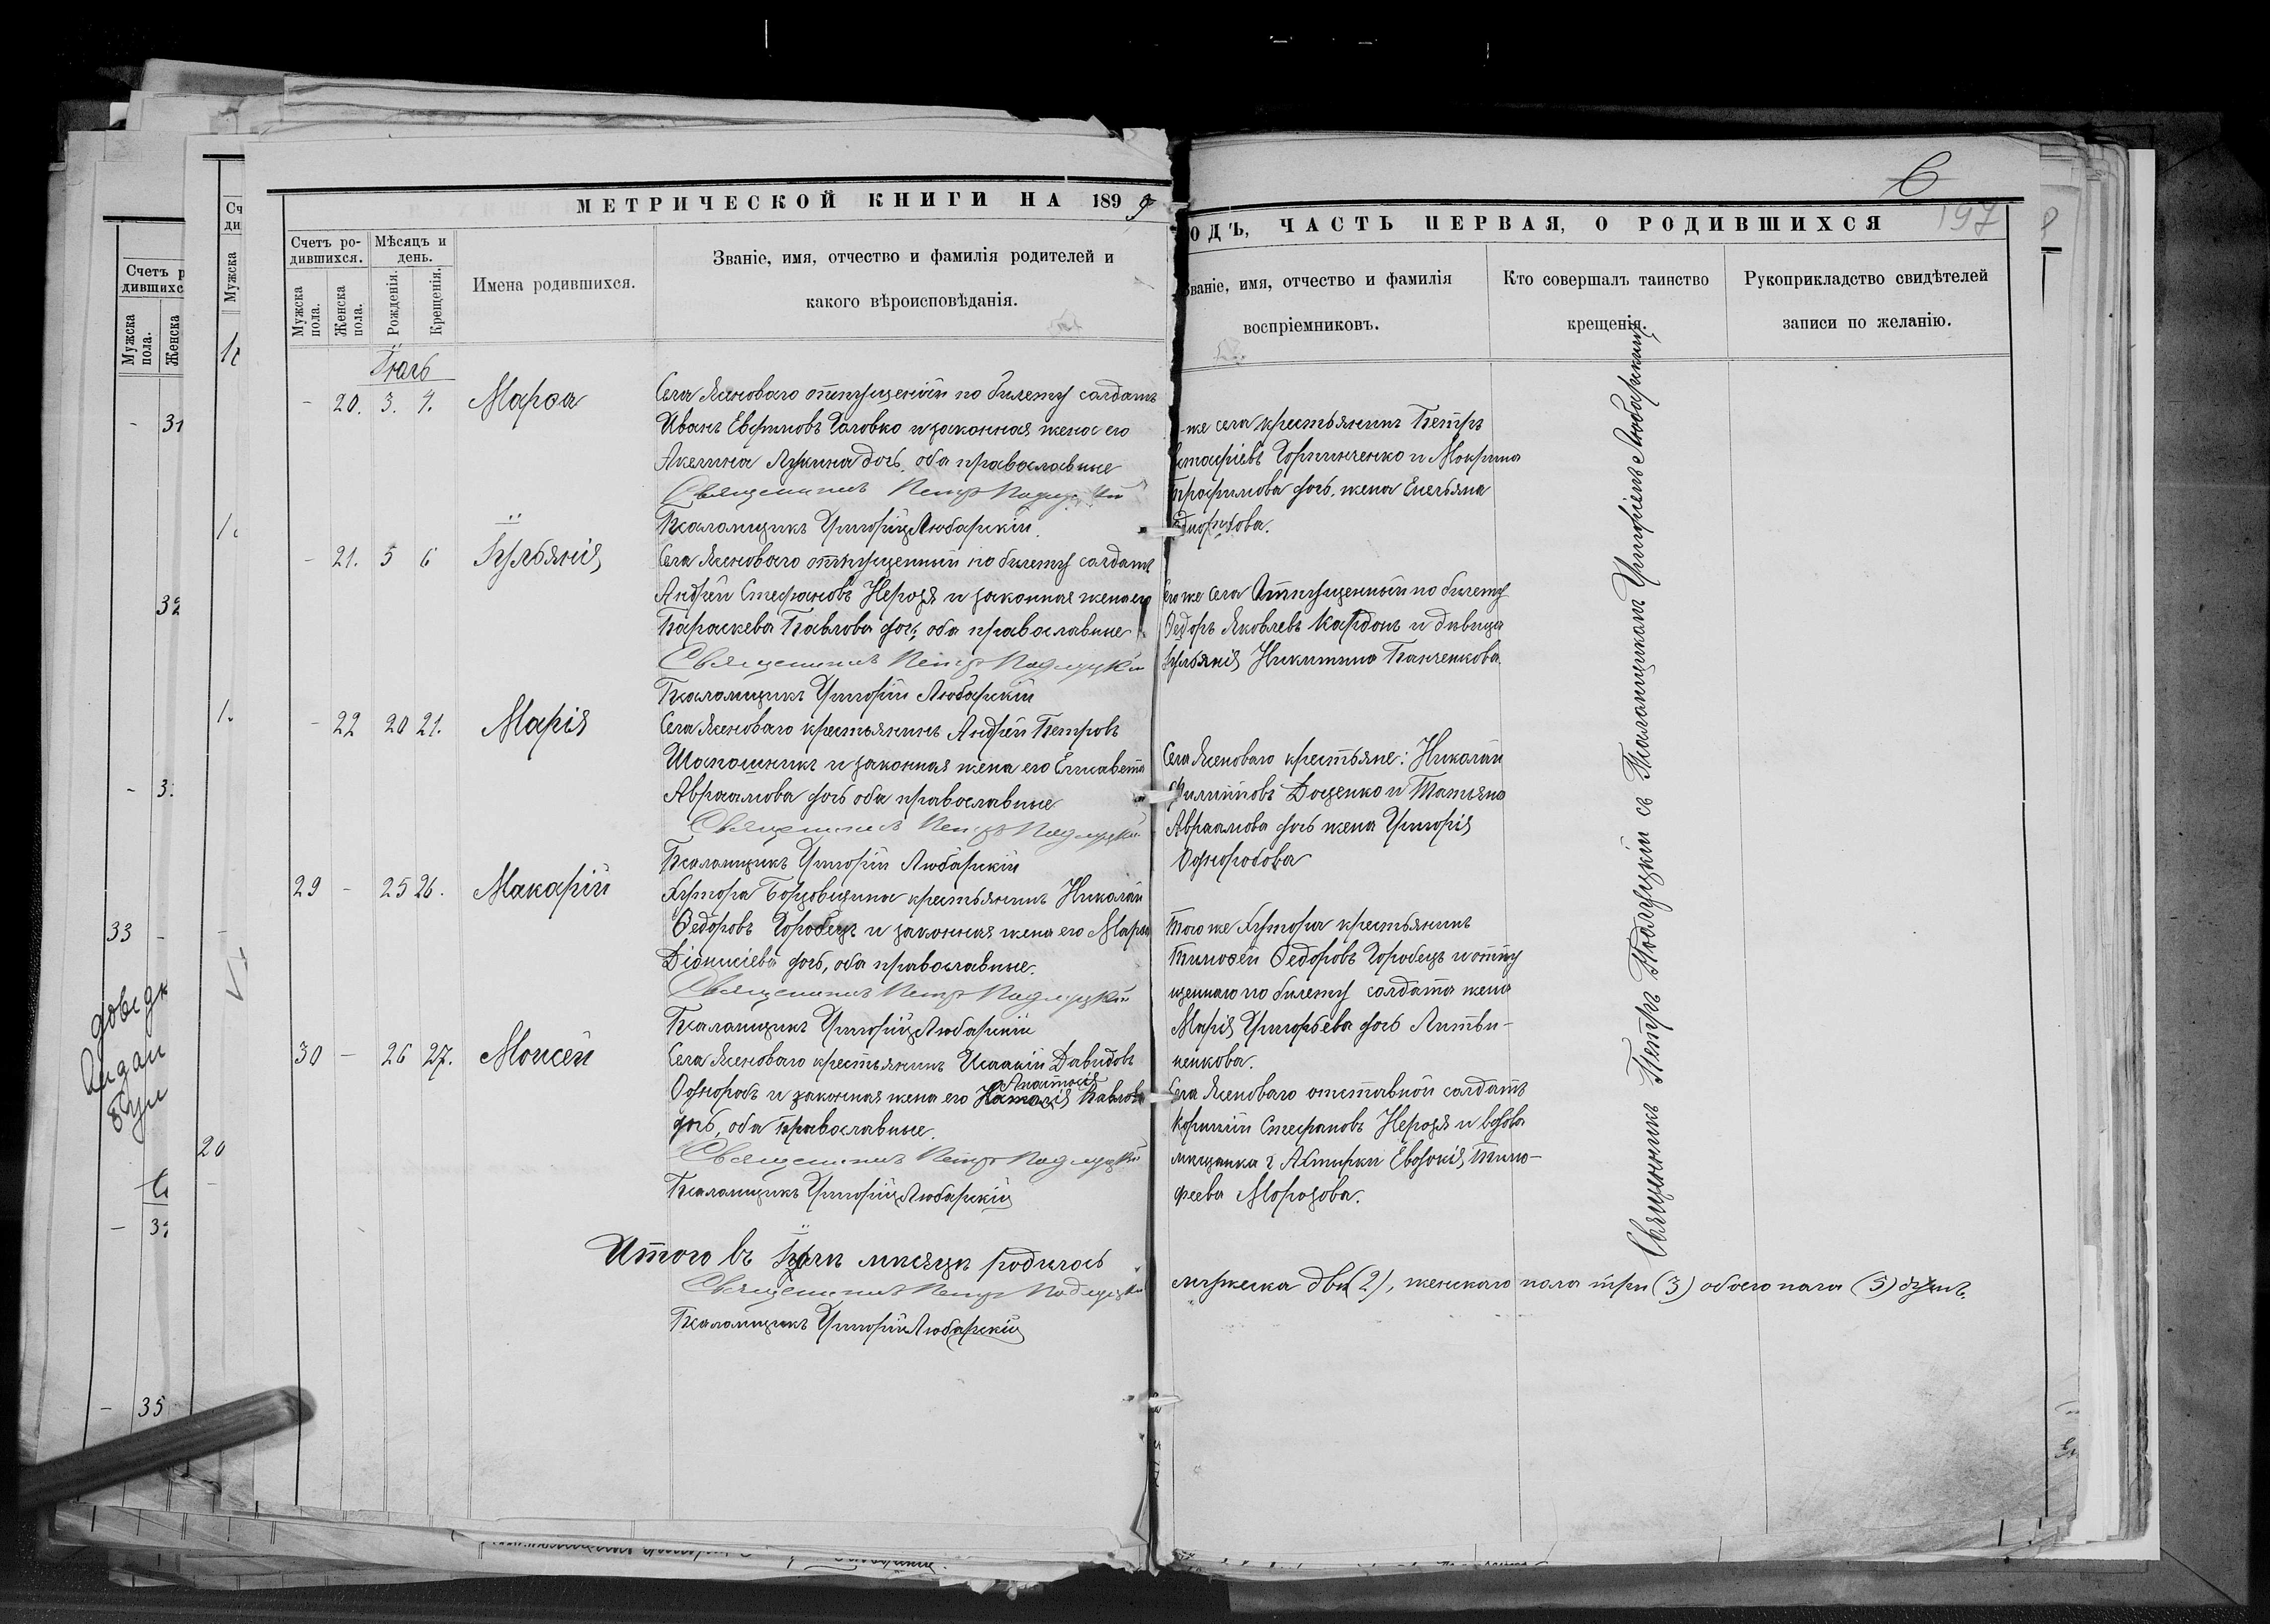 МЕТРИЧЕСКОЙ КНИГИ НА 1899
Счетъ родившихся.
Мѣсяцъ и день.
Имена родившихся.
Званіе, имя, отчество и фамилія родителей и
какого вѣроисповѣданія.
Мужска пола.
Женска пола.
Рожденія.
Крещенія.
Іюль
- 20. 3. 4. Марѳа
Села Ясеноваго отпущенный по билету солдатъ
Иванъ Евфимовъ Головко и законная жена его
Акелина Лукина дочь, оба православные
Священникъ Петръ Подлуцкій
Псаломщикъ Григорій Любарскій.
- 21. 5 6 Іуліанія
Села Ясеноваго отпущенный по билету солдатъ
Андрей Стефановъ Нерозя и законная жена его
Параскева Павлова дочь, оба православные
Священникъ Петръ Подлуцкій
Псаломщикъ Григорій Любарскій
- 22 20 21. Марія
Села Ясеноваго крестьянинъ Андрей Петровъ
Шапошникъ и законная жена его Елисавета
Авраамова дочь оба православные
Священникъ Петръ Подлуцкій
Псаломщикъ Григорій Любарскій
29 - 25 26. Макарій
Хутора Борзовщина крестьянинъ Николай
Ѳедоровъ Горобецъ и законная жена его Марѳа
Діонисіева дочь, оба православные.
Священникъ Петръ Подлуцкій
Псаломщикъ Григорій Любарскій
30 - 26 27. Моисей
Села Ясеноваго крестьянинъ Исаакій Давидовъ
Анастасія
Одноробъ и законная жена его Павлова
дочь, оба православные.
Священникъ Петръ Подлуцкій
Псаломщикъ Григорій Любарскій
Итого въ Іюлѣ мѣсяцѣ родилось
Священникъ Петръ Подлуцкій
Псаломщикъ Григорій Любарскій
6
197
ОДЪ, ЧАСТЬ ПЕРВАЯ, О РОДИВШИХСЯ
Званіе, имя, отчество и фамилія
воспріемниковъ.
Кто совершалъ таинство
крещенія.
Рукоприкладство свидѣтелей
записи по желанію.
же села крестьянинъ Петръ
Горпинченко и Мокрина
Трофимова дочь, жена Емельяна
Однороб​ова.
Того же села Отпущенный по билету
Ѳедоръ Яковлевъ Кардонъ и дѣвица
Іуліанія Никитина Панченкова.
Села Ясеноваго крестьяне: Николай
Филиповъ Доценко и Татьяна
Авраамова дочь жена Григорія
Одноробова
Того же хутора крестьянинъ
Тимоѳей Ѳедоровъ Горобецъ и отпу
щеннаго по билету солдата жена
Марія Григорьева дочь Литви-
ненкова.
Села Ясеноваго отставной солдатъ
Корнилій Стефановъ Нерозя и вдова
мѣщанка г. Ахтырки Евдокія Тимо-
феева Морозова.
мужеска два (2), женскаго пола три (3) обоего пола (5) душъ.
Священникъ Петръ Подлуцкій съ Псаломщикомъ Григоріемъ Любарскимъ
Счетъ р
дившихс
Мужска пола.
Женска
31
32
33
20
35